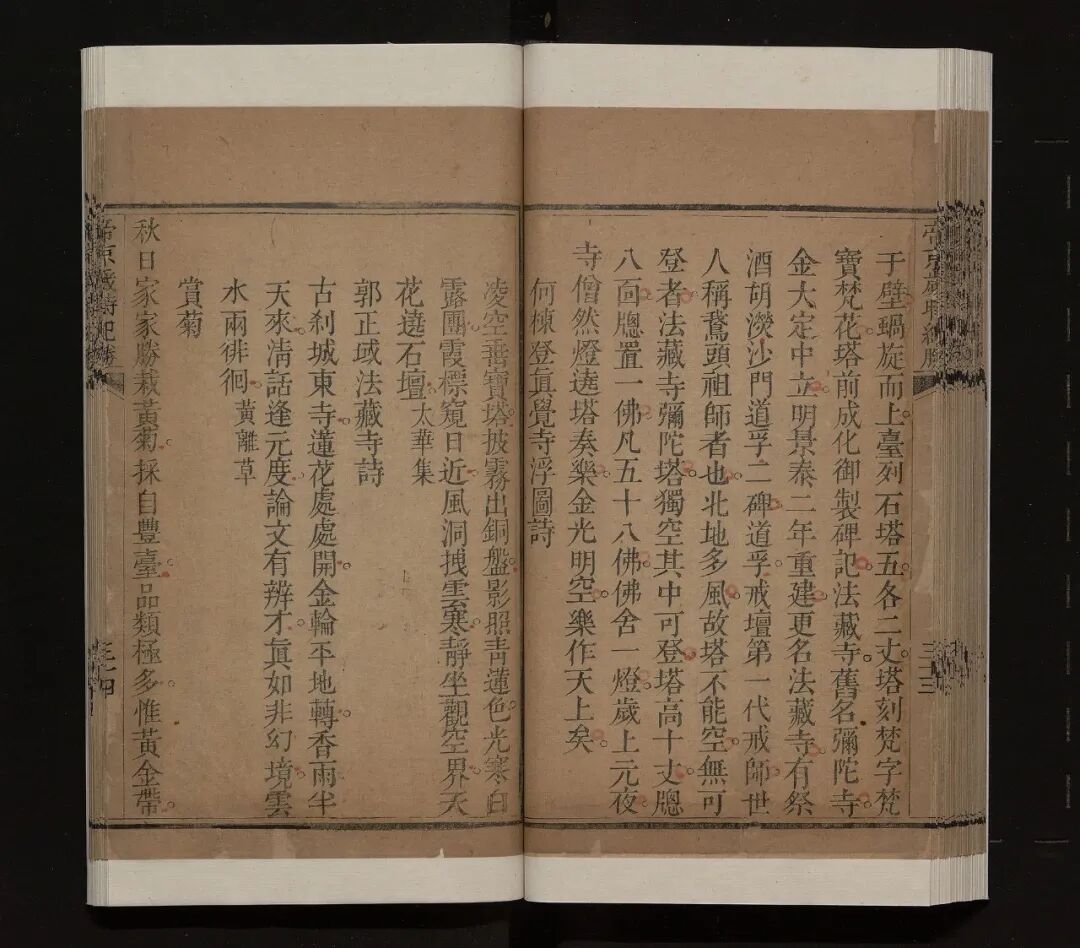 于壁蝸旋而上臺列石塔五各二丈塔刻梵字梵
寶梵花塔前成化御製碑記法藏寺舊名彌陀寺
金大定中立明景泰二年重建更名法藏寺有祭
酒胡濙沙門道孚二碑道孚戒壇第一代戒師世
人稱鵞頭祖師者也北地多風故塔不能空無可
登者法藏寺彌陀塔獨空其中可登塔高十丈牕
八面牕置一佛凡五十八佛佛舍一燈歲上元夜
寺僧然燈遶塔奏樂金光明空樂作天上矣
何棟登眞覺寺浮圖詩
凌空垂寶塔披霧出銅盤影照靑蓮色光寒白
露團霞標窺日近風洞拽雲寒靜坐觀空界天
花遶石壇太華集
郭正域法藏寺詩
古刹城東寺蓮花處處開金輪平地轉香雨半
天來淸話逢元度論文有辨才眞如非幻境雲
水兩徘徊黃離草
賞菊
秋日家家勝栽黃菊採自豐臺品類極多惟黃金帶
帝京歲時紀勝